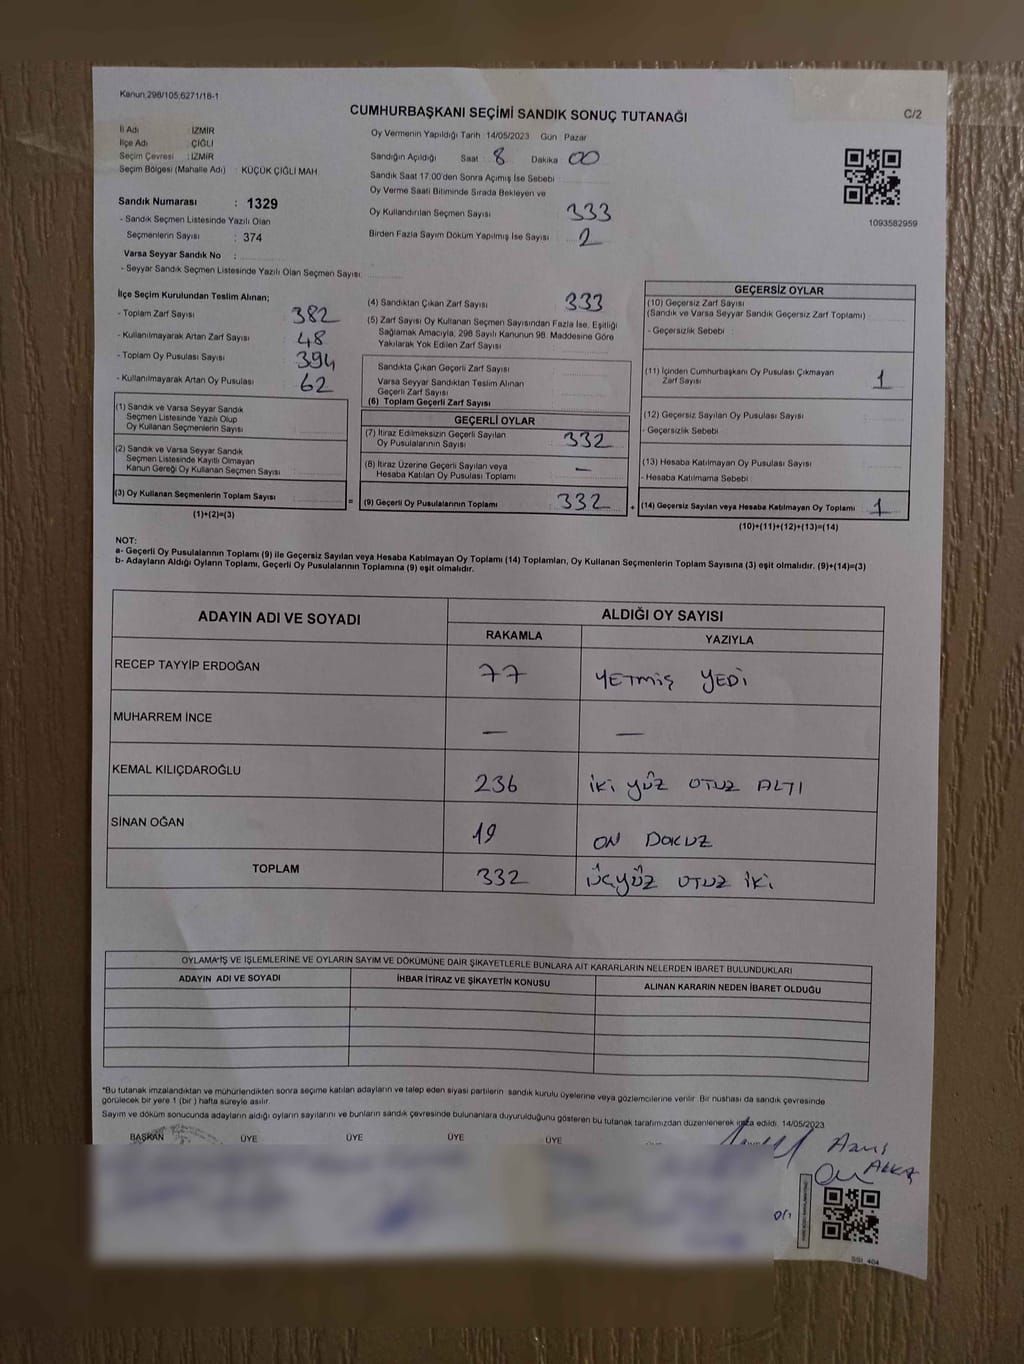 Kanun:298/105;6271/18-1
CUMHURBAŞKANI SEÇİMİ SANDIK SONUÇ TUTANAĞI
C/2
İl Adı : İZMİR
İlçe Adı : ÇİĞLİ
Seçim Çevresi : İZMİR
Seçim Bölgesi (Mahalle Adı) : KÜÇÜK ÇİĞLİ MAH.
Sandık Numarası : 1329
- Sandık Seçmen Listesinde Yazılı Olan
Seçmenlerin Sayısı : 374
Varsa Seyyar Sandık No :
- Seyyar Sandık Seçmen Listesinde Yazılı Olan Seçmen Sayısı:
Oy Vermenin Yapıldığı Tarih :14/05/2023 Gün : Pazar
Sandığın Açıldığı Saat : 8 Dakika : 00
Sandık Saat 17:00'den Sonra Açılmış İse Sebebi :
Oy Verme Saati Bitiminde Sırada Bekleyen ve
Oy Kullandırılan Seçmen Sayısı : 333
Birden Fazla Sayım Döküm Yapılmış İse Sayısı : 2
1093582959
İlçe Seçim Kurulundan Teslim Alınan;
- Toplam Zarf Sayısı : 382
- Kullanılmayarak Artan Zarf Sayısı : 48
- Toplam Oy Pusulası Sayısı : 394
- Kullanılmayarak Artan Oy Pusulası : 62
(1) Sandık ve Varsa Seyyar Sandık
Seçmen Listesinde Yazılı Olup
Oy Kullanan Seçmenlerin Sayısı
(2) Sandık ve Varsa Seyyar Sandık
Seçmen Listesinde Kayıtlı Olmayan
Kanun Gereği Oy Kullanan Seçmen Sayısı
(3) Oy Kullanan Seçmenlerin Toplam Sayısı
(1)+(2)=(3)
(4) Sandıktan Çıkan Zarf Sayısı : 333
(5) Zarf Sayısı Oy Kullanan Seçmen Sayısından Fazla İse, Eşitliği
Sağlamak Amacıyla, 298 Sayılı Kanunun 98. Maddesine Göre
Yakılarak Yok Edilen Zarf Sayısı :
Sandıkta Çıkan Geçerli Zarf Sayısı
Varsa Seyyar Sandıktan Teslim Alınan
Geçerli Zarf Sayısı
(6) Toplam Geçerli Zarf Sayısı
=
GEÇERLİ OYLAR
(7) İtiraz Edilmeksizin Geçerli Sayılan
Oy Pusulalarının Sayısı 332
(8) İtiraz Üzerine Geçerli Sayılan veya
Hesaba Katılan Oy Pusulası Toplamı —
(9) Geçerli Oy Pusulalarının Toplamı 332
+
GEÇERSİZ OYLAR
(10) Geçersiz Zarf Sayısı
(Sandık ve Varsa Seyyar Sandık Geçersiz Zarf Toplamı)
- Geçersizlik Sebebi :
(11) İçinden Cumhurbaşkanı Oy Pusulası Çıkmayan
Zarf Sayısı 1
(12) Geçersiz Sayılan Oy Pusulası Sayısı
- Geçersizlik Sebebi :
(13) Hesaba Katılmayan Oy Pusulası Sayısı
- Hesaba Katılmama Sebebi :
(14) Geçersiz Sayılan veya Hesaba Katılmayan Oy Toplamı 1
(10)+(11)+(12)+(13)=(14)
NOT:
a- Geçerli Oy Pusulalarının Toplamı (9) ile Geçersiz Sayılan veya Hesaba Katılmayan Oy Toplamı (14) Toplamları, Oy Kullanan Seçmenlerin Toplam Sayısına (3) eşit olmalıdır. (9)+(14)=(3)
b- Adayların Aldığı Oyların Toplamı, Geçerli Oy Pusulalarının Toplamına (9) eşit olmalıdır.
ADAYIN ADI VE SOYADI
ALDIĞI OY SAYISI
RAKAMLA YAZIYLA
RECEP TAYYİP ERDOĞAN 77 YETMİŞ YEDİ
MUHARREM İNCE — —
KEMAL KILIÇDAROĞLU 236 İKİ YÜZ OTUZ ALTI
SİNAN OĞAN 19 ON DOKUZ
TOPLAM 332 ÜÇYÜZ OTUZ İKİ
OYLAMA İŞ VE İŞLEMLERİNE VE OYLARIN SAYIM VE DÖKÜMÜNE DAİR ŞİKAYETLERLE BUNLARA AİT KARARLARIN NELERDEN İBARET BULUNDUKLARI
ADAYIN ADI VE SOYADI İHBAR İTİRAZ VE ŞİKAYETİN KONUSU ALINAN KARARIN NEDEN İBARET OLDUĞU
*Bu tutanak imzalandıktan ve mühürlendikten sonra seçime katılan adayların ve talep eden siyasi partilerin sandık kurulu üyelerine veya gözlemcilerine verilir. Bir nüshası da sandık çevresinde
görülecek bir yere 1 (bir) hafta süreyle asılır.
Sayım ve döküm sonucunda adayların aldığı oyların sayılarını ve bunların sandık çevresinde bulunanlara duyurulduğunu gösteren bu tutanak tarafımızdan düzenlenerek imza edildi. 14/05/2023
BAŞKAN ÜYE ÜYE ÜYE ÜYE
SSI 404